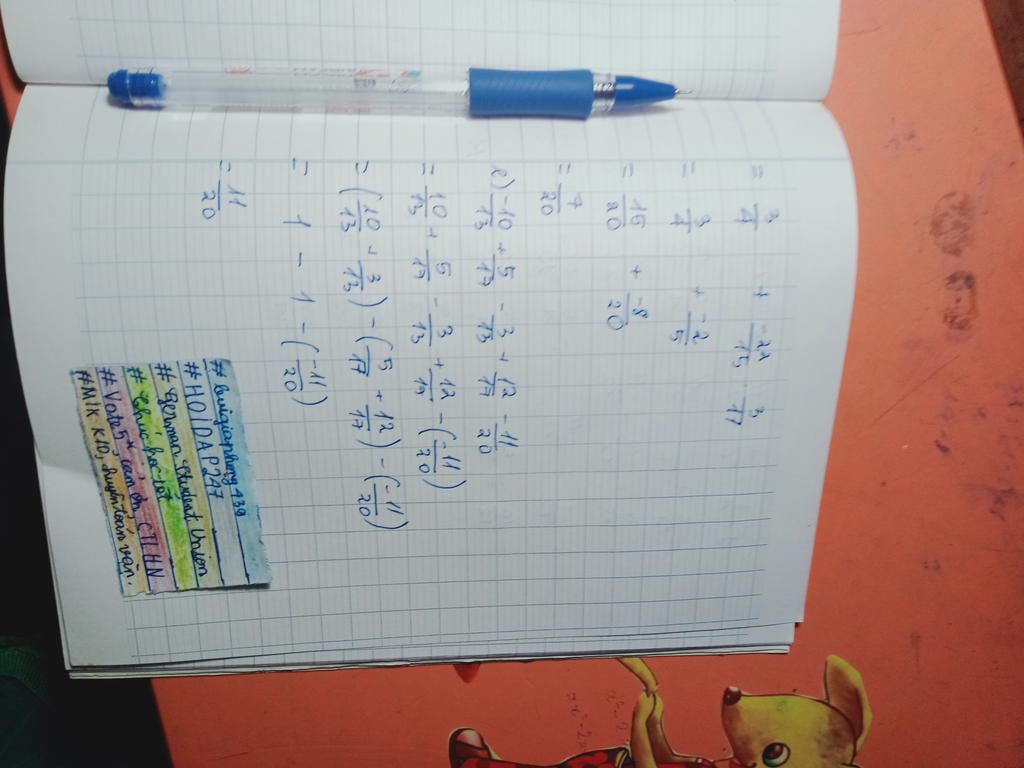 = 3/4 + -22/15 · 3/11
= 3/4 + -2/5
= 15/20 + -8/20
= 7/20
e) -10/13 + 5/17 - 3/13 + 12/17 - 11/20
= 10/13 + 5/17 - 3/13 + 12/17 - (-11/20)
= (10/13 + 3/13) - (5/17 + 12/17) - (-11/20)
= 1 - 1 - (-11/20)
= 11/20
#HOIDAP247
#German Student Union
#Chúc họ tốt
#Vote 5*, cám ơn, CTLHN
#Mik K10, chuyên toán văn.